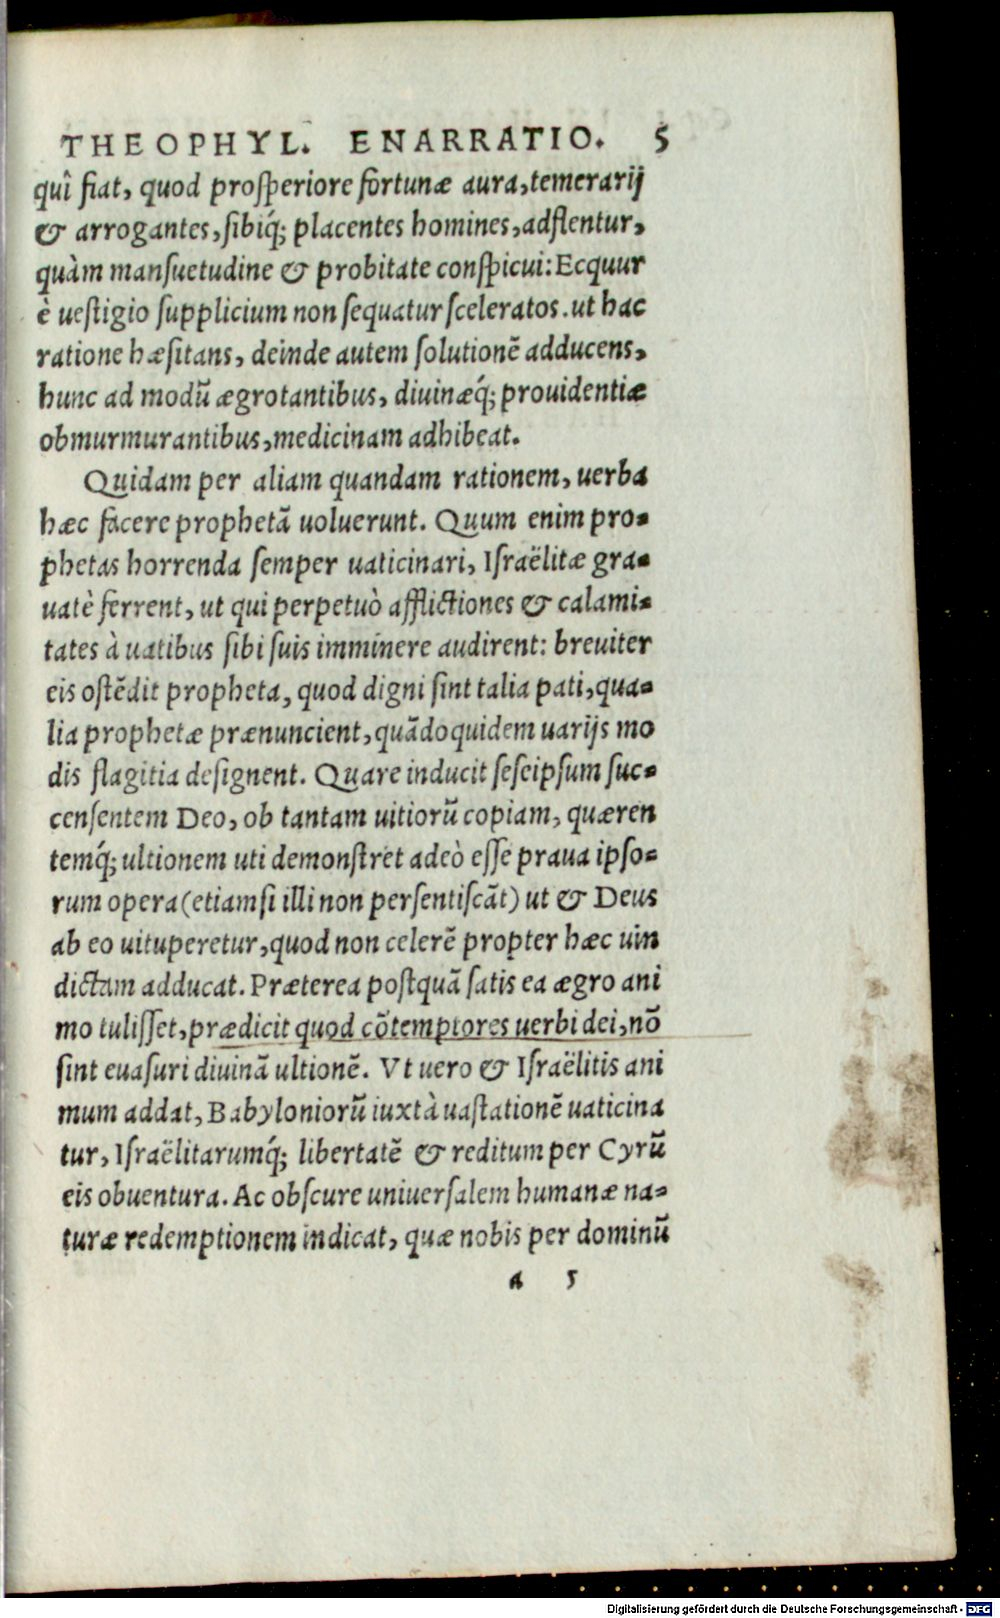 THEOPHYL. ENARRATIO. 5
quî fiat, quod prosperiore fortunæ aura, temerarij
& arrogantes, sibiq́; placentes homines, adflentur,
quàm mansuetudine & probitate conspicui: Ecquur
è uestigio supplicium non sequatur sceleratos. ut hac
ratione hæsitans, deinde autem solutionẽ adducens,
hunc ad modũ ægrotantibus, diuinæq́; prouidentiæ
obmurmurantibus, medicinam adhibeat.
Quidam per aliam quandam rationem, uerba
hæc facere prophetã uoluerunt. Quum enim pro-
phetas horrenda semper uaticinari, Israëlitæ gra-
uatè ferrent, ut qui perpetuò afflictiones & calami-
tates à uatibus sibi suis imminere audirent: breuiter
eis ostẽdit propheta, quod digni sint talia pati, qua-
lia prophetæ prænuncient, quãdoquidem uarijs mo
dis flagitia designent. Quare inducit seseipsum suc-
censentem Deo, ob tantam uitiorũ copiam, quæren
temq́; ultionem uti demonstret adeò esse praua ipso-
rum opera (etiamsi illi non persentiscãt) ut & Deus
ab eo uituperetur, quod non celerẽ propter hæc uin
dictam adducat. Præterea postquã satis ea ægro ani
mo tulisset, prædicit quod cõtemptores uerbi dei, nõ
sint euasuri diuinã ultionẽ. Vt uero & Israëlitis ani
mum addat, Babyloniorũ iuxtà uastationẽ uaticina
tur, Israëlitarumq́; libertatẽ & reditum per Cyrũ
eis obuentura. Ac obscure uniuersalem humanæ na-
turæ redemptionem indicat, quæ nobis per dominũ
a 5
Digitalisierung gefördert durch die Deutsche Forschungsgemeinschaft - DFG